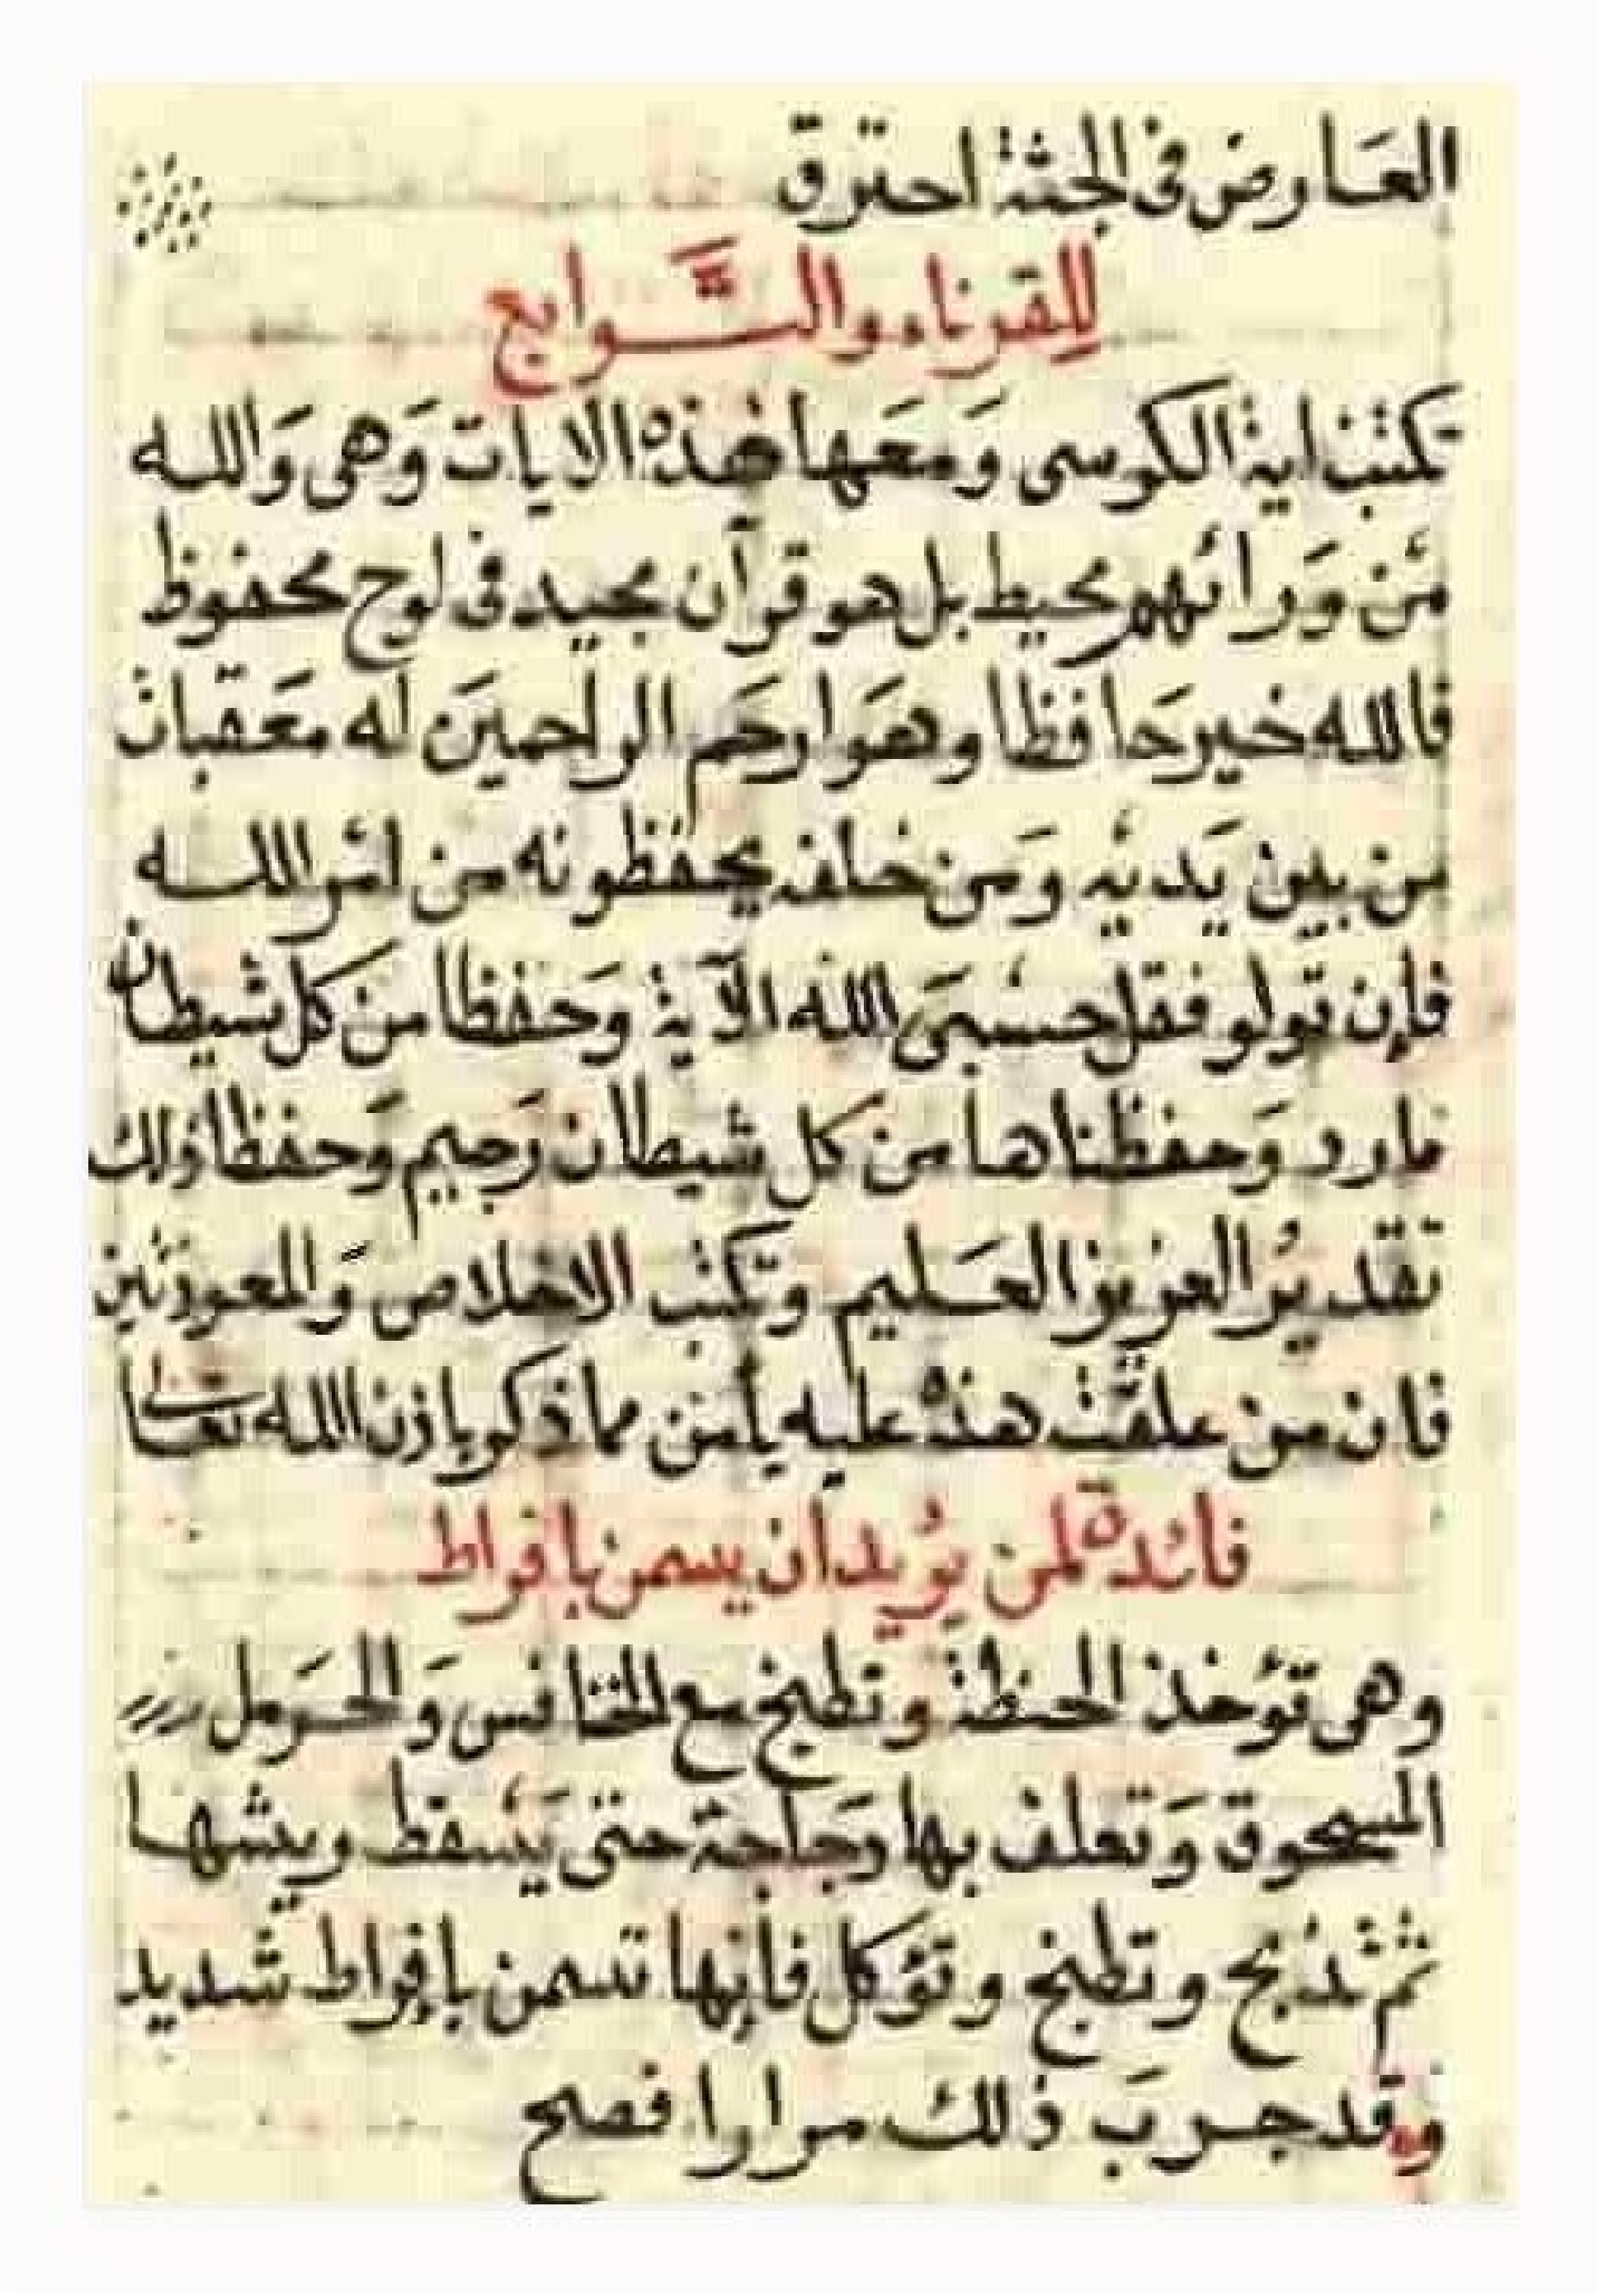 العارض في الجثة احترق
للقرناء والتَّوابع
تكتب اية الكرسى وَمعَها هذه الايات وَهى وَالله
من وَرائهم محيط بل هو قرآن مجيد في لوح محفوظ
فالله خير حَافظا وهوَ ارحَم الراحمينَ له معَقبات
من بين يَديه وَمن خلفه يحفظونه من امر اللــه
فإن تولو فقل حسبىَ الله الآية وَحفظا منَ كل شيطان
مارد وَحفظناها من كل شيطان رَجيم وَحفظا ذلك
تقديرُ العزيز العَـليم وتكتب الاخلاص وَالمعوذتين
فان من علقَت هذه عليه يأمن مما ذكر باذن الله تعالى
فائدة لمن يُريد أن يسمن بافراط
وهى تؤخذ الحنطة وتطبخ مع الخنافس وَالحَرمل
المسحوق وَتعلف بها دجَاجة حتى يَسقط ريشها
ثم تذبح وتطبخ وتؤكل فإنها تسمن بإفراط شديد
وقد جربَ ذلك مرارا فصح